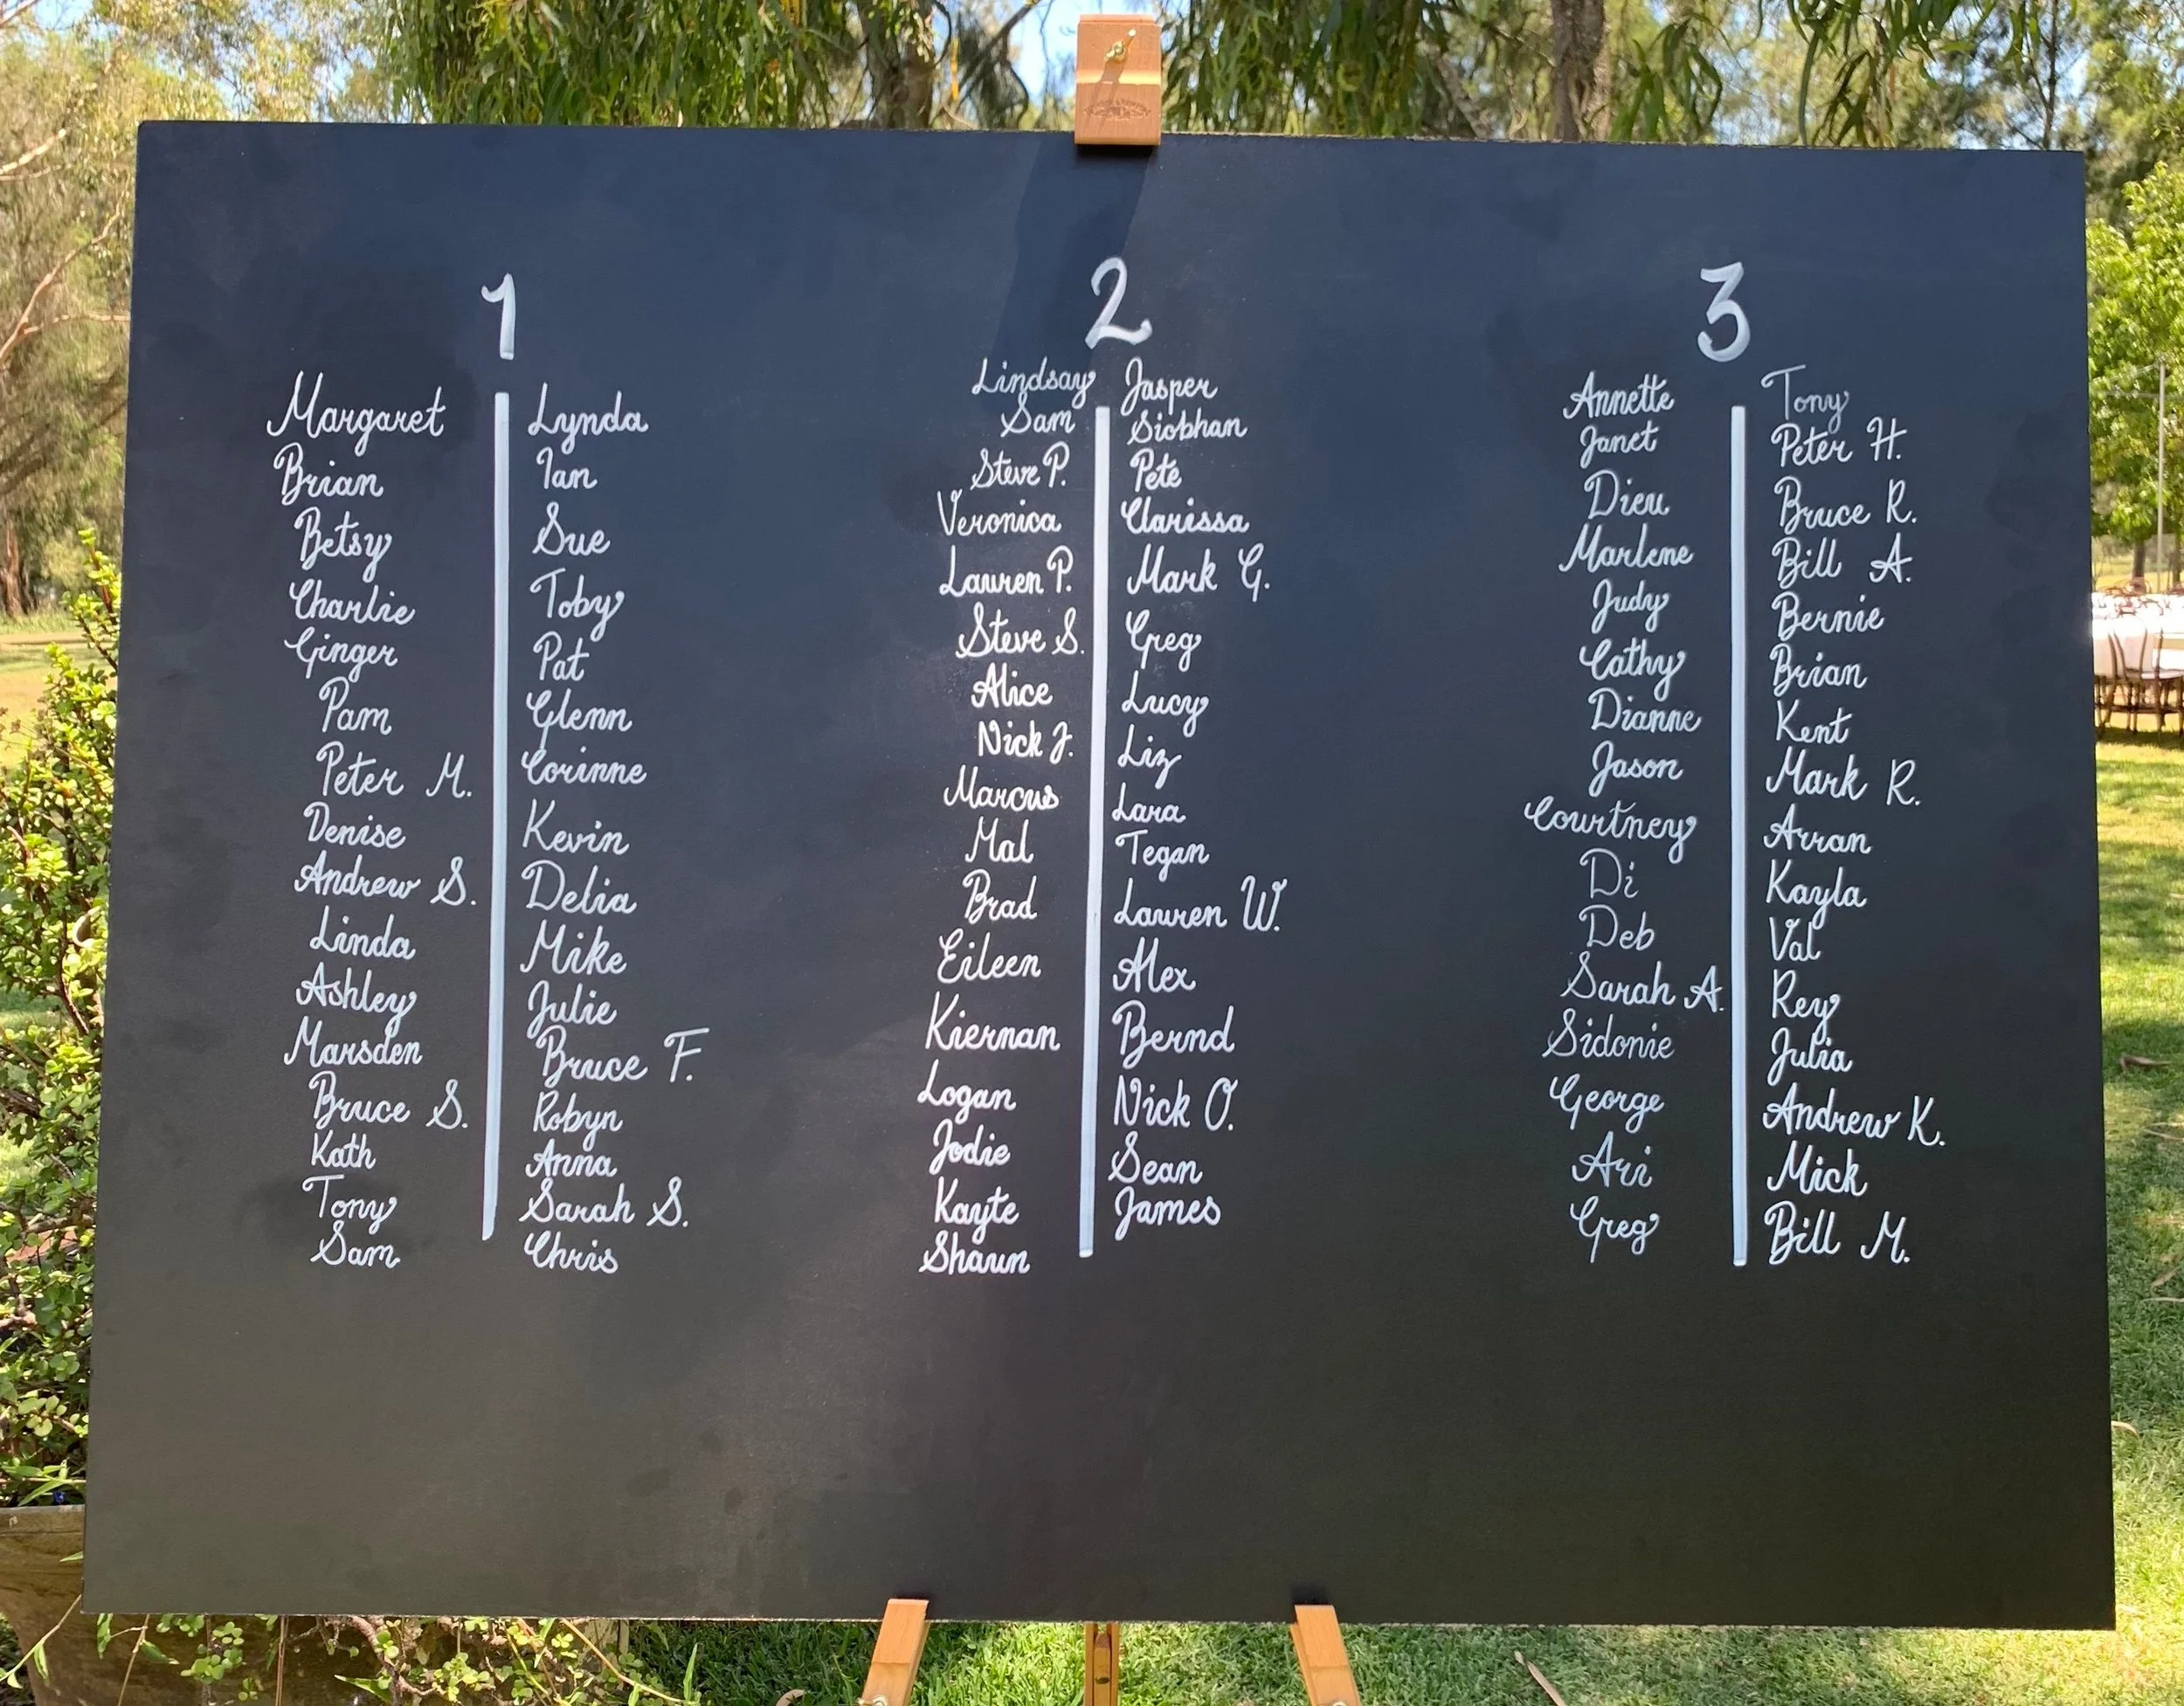 1
Margaret
Brian
Betsy
Charlie
Ginger
Pam
Peter M.
Denise
Andrew S.
Linda
Ashley
Marsden
Bruce S.
Kath
Tony
Sam
Lynda
Ian
Sue
Toby
Pat
Glenn
Corinne
Kevin
Delia
Mike
Julie
Bruce F.
Robyn
Anna
Sarah S.
Chris
2
Lindsay
Sam
Steve P.
Veronica
Lauren P.
Steve S.
Alice
Nick J.
Marcus
Mal
Brad
Eileen
Kiernan
Logan
Jodie
Kayte
Shaun
Jasper
Siobhan
Pete
Clarissa
Mark G.
Greg
Lucy
Liz
Lara
Tegan
Lauren W.
Alex
Bernd
Nick O.
Sean
James
3
Annette
Janet
Dieu
Marlene
Judy
Cathy
Dianne
Jason
Courtney
Di
Deb
Sarah A.
Sidonie
George
Ari
Greg
Tony
Peter H.
Bruce R.
Bill A.
Bernie
Brian
Kent
Mark R.
Arran
Kayla
Val
Rey
Julia
Andrew K.
Mick
Bill M.